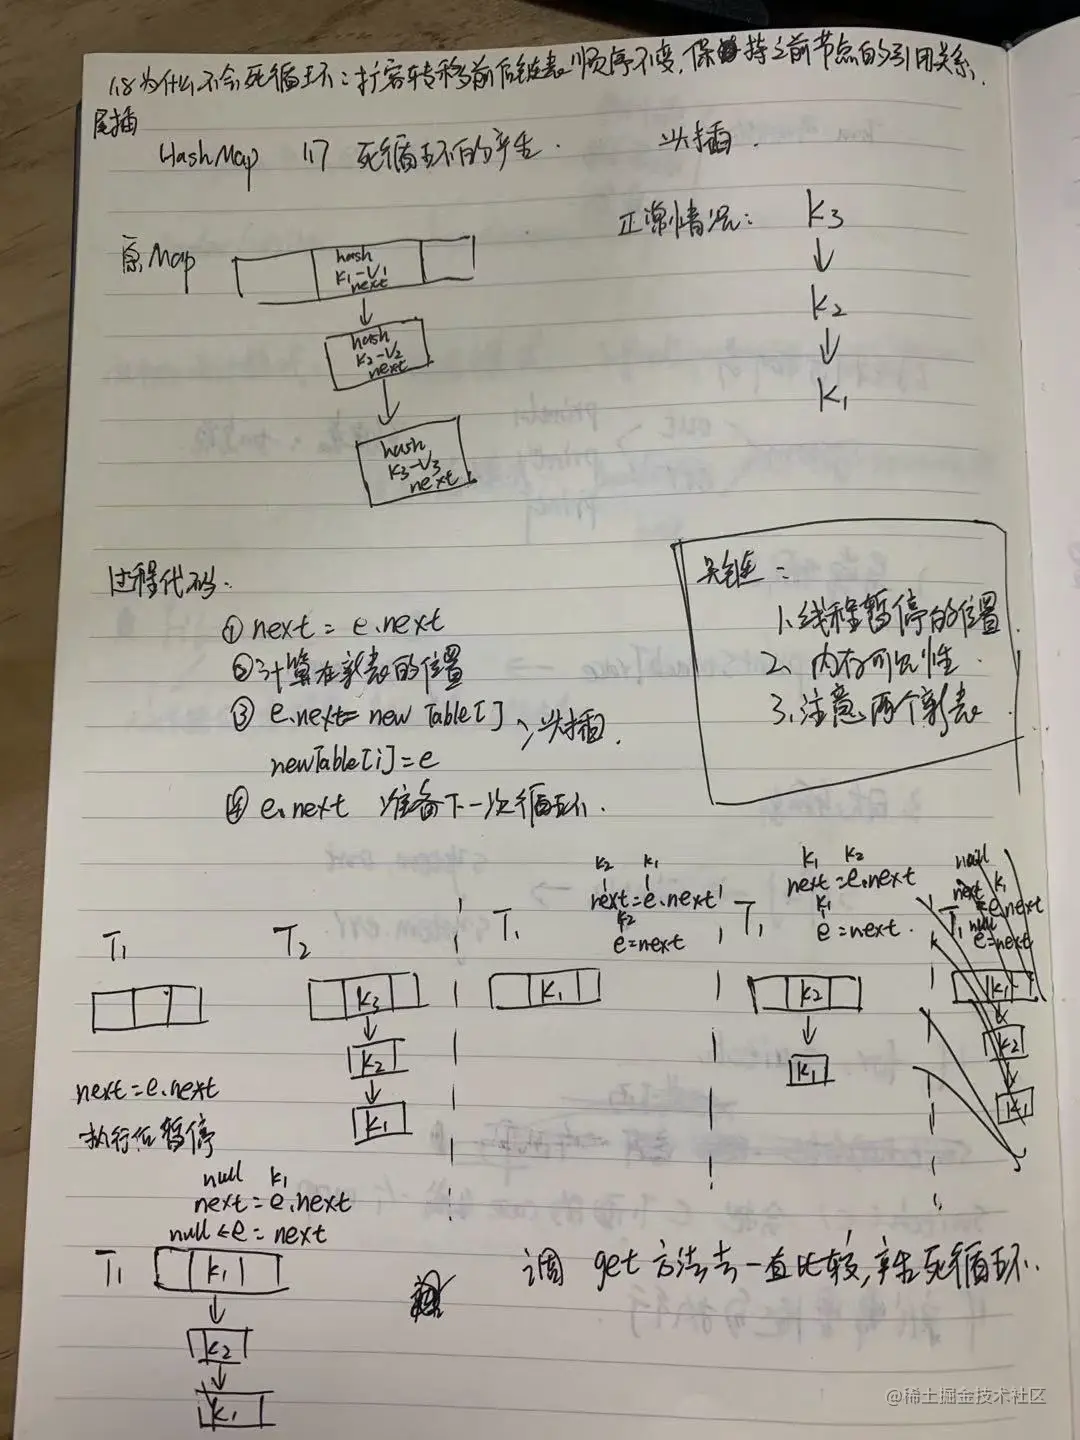 1.8为什么不会死循环：扩容转移前后链表顺序不变，保持之前节点的引用关系.
尾插
HashMap 1.7 死循环的产生. 头插.
正常情况：
K3
K2
K1
原Map
hash
K1-V1
next
hash
K2-V2
next
hash
K3-V3
next
过程代码.
① next = e.next
②计算在新表的位置
③ e.next = newTable[i]
newTable[i] = e
头插.
④ e.next 准备下一次循环.
关键：
1.线程暂停的位置.
2.内存可见性.
3.注意两个新表
T1
next = e.next
执行后暂停
T2
K3
K2
K1
T1
K2 K1
next = e.next
K2
e = next
K1
T1
K1 K2
next = e.next
K1
e = next.
K2
K1
null
next K1
= e.next
T1 null
e = next
K1
K2
K1
null K1
next = e.next
null ← e = next
T1
K1
K2
K1
调 get 方法去一直比较，产生死循环.
@稀土掘金技术社区